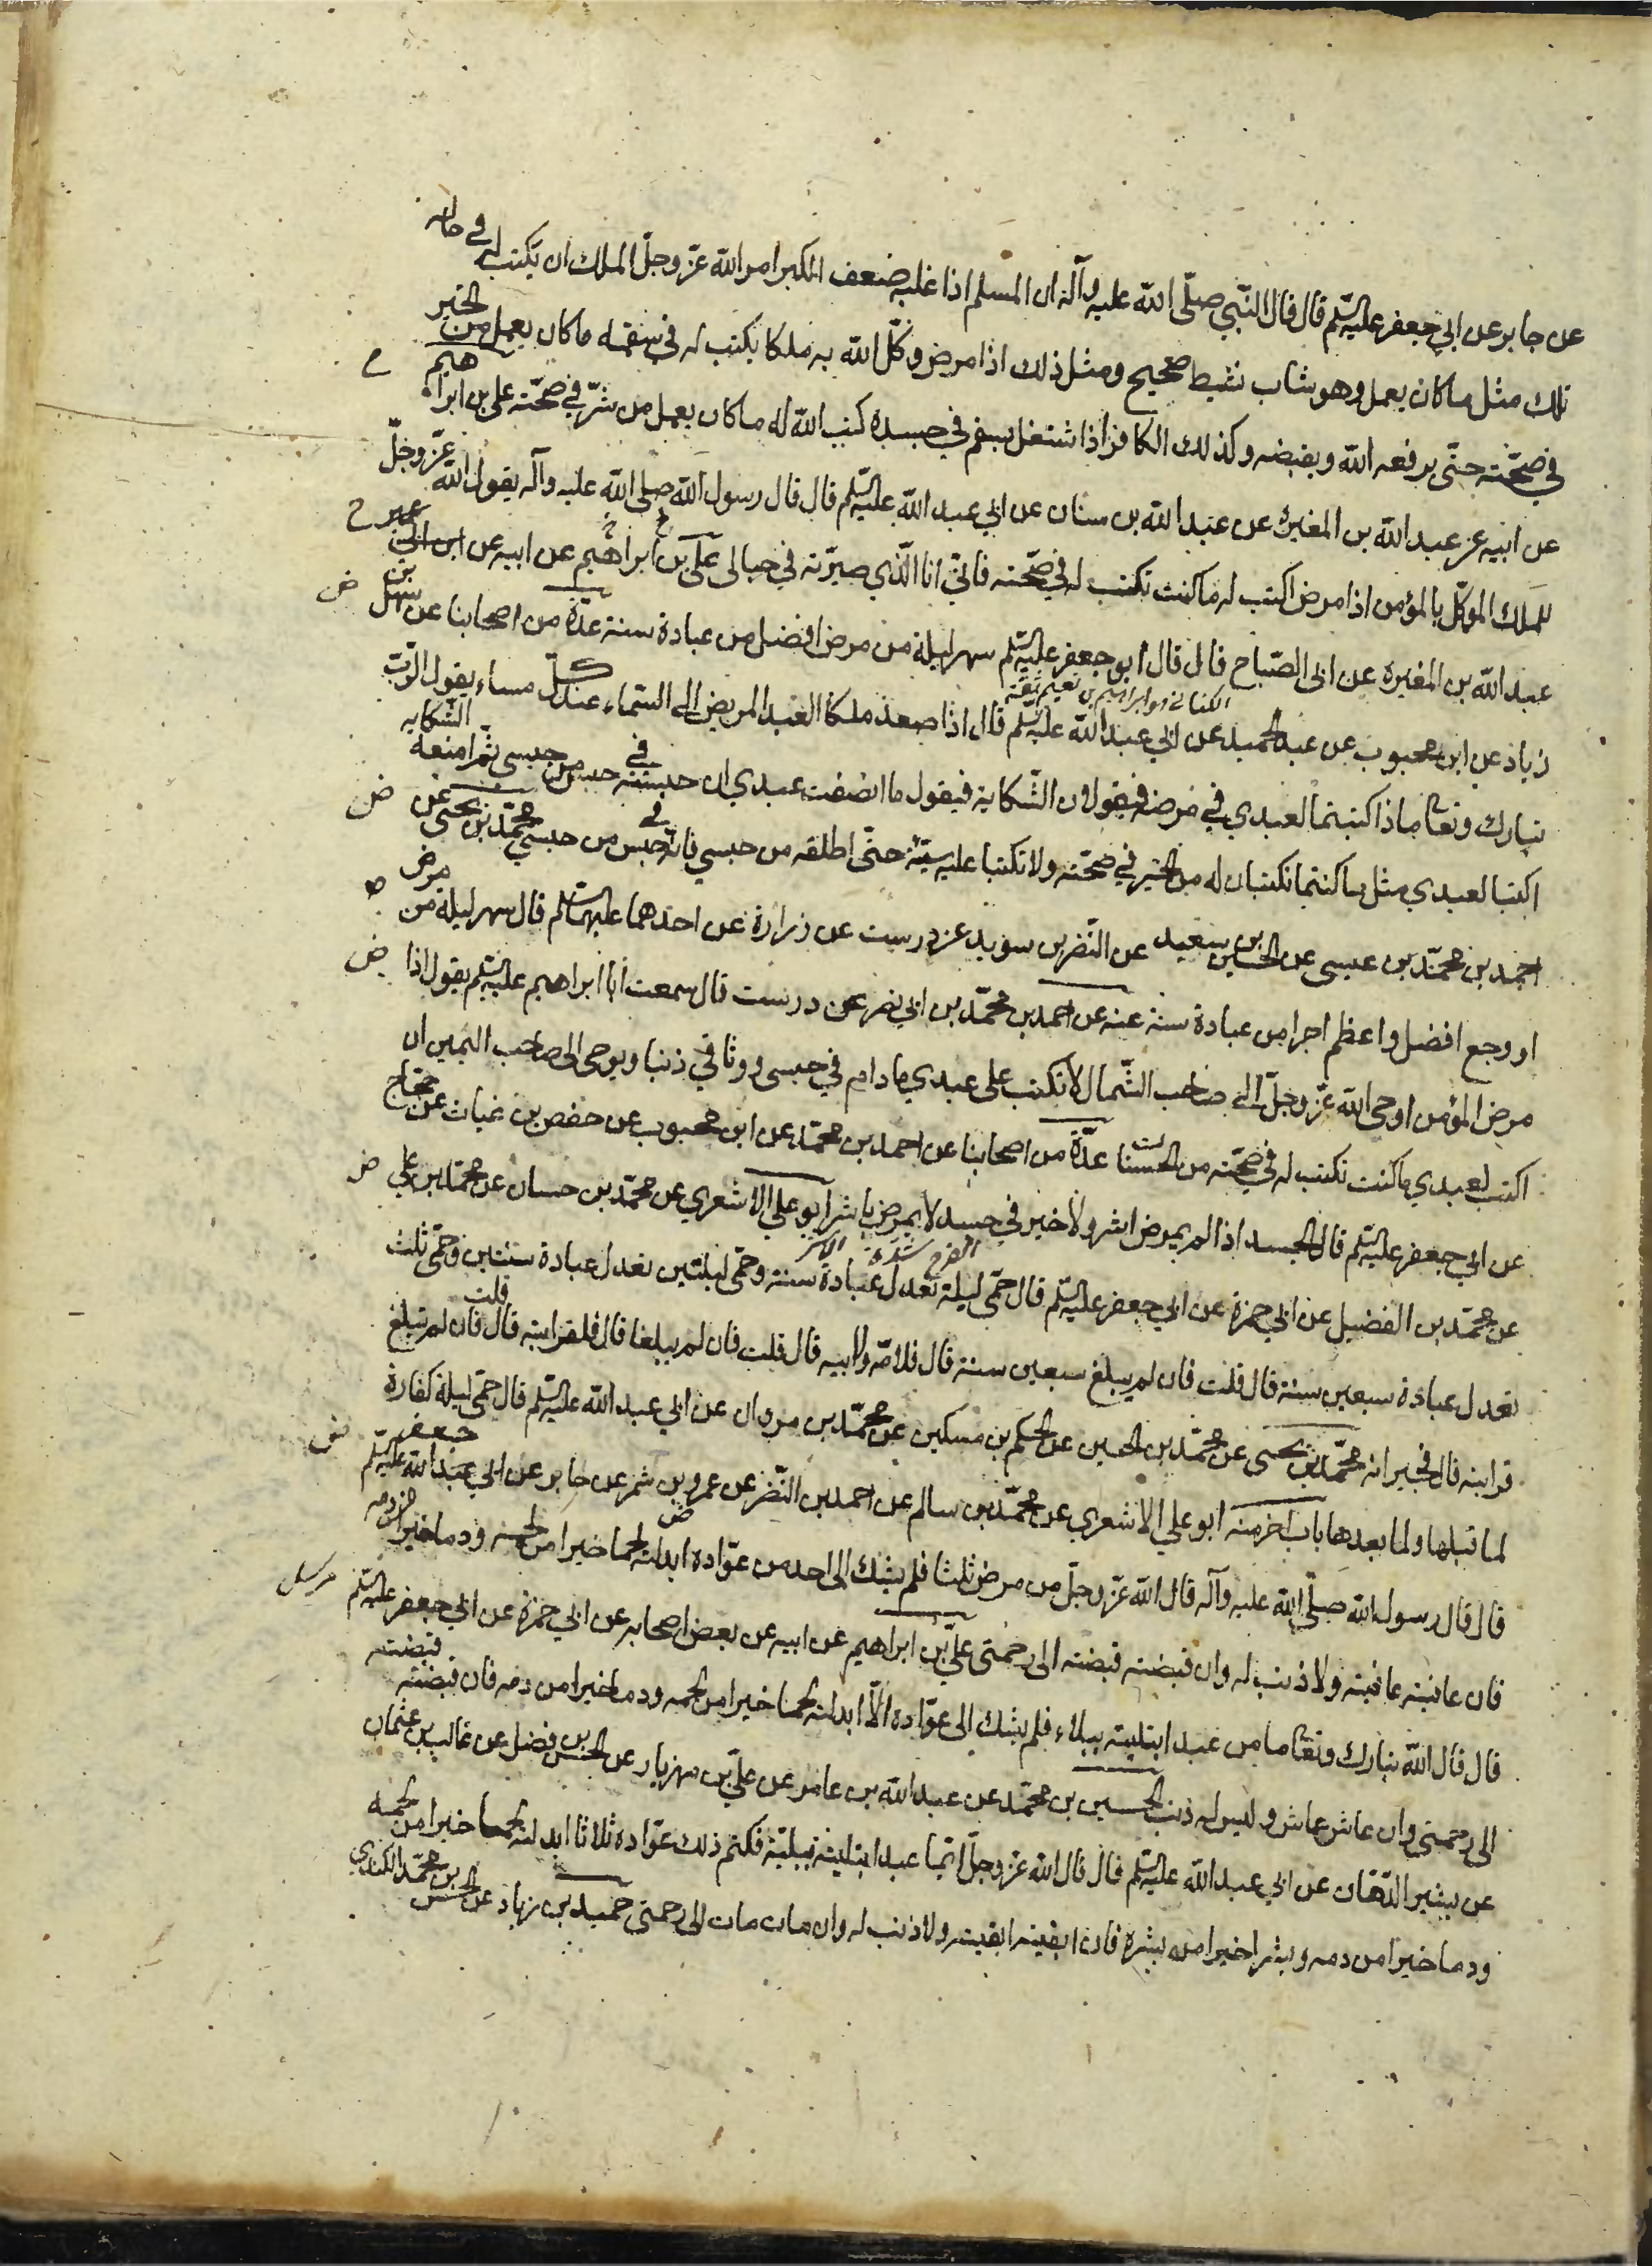 عن جابر عن ابي جعفر عليه السلم قال قال النبي صلّى الله عليه وآله ان المسلم اذا غلبه ضعف الكبر امر الله عزّ وجلّ الملك ان يكتب له في حاله
تلك مثل ما كان يعمل وهو شاب نشيط صحيح ومثل ذلك اذا مرض وكّل الله به ملكا يكتب له في سقمه ما كان يعمل من الخير
في صحّته حتّى يرفعه الله ويقبضه وكذلك الكافر اذا اشتغل بسقم في جسده كتب الله له ما كان يعمل من شرّ في صحّته علي بن ابراهيم
عن ابيه عن عبد الله بن المغيرة عن عبد الله بن سنان عن ابي عبد الله عليه السلم قال قال رسول الله صلى الله عليه وآله يقول الله عزّ وجلّ
للملك الموكّل بالمؤمن اذا مرض اكتب له ما كنت تكتب له في صحّته فانّي انا الّذي صيّرته في حبالي عليّ بن ابراهيم عن ابيه عن
عبد الله بن المغيرة عن ابي الصّباح قال قال ابو جعفر عليه السلم سهر ليلة من مرض افضل من عبادة سنة عدّة من اصحابنا عن سهل بن
الكناني هو ابراهيم بن نعيم ثقة
زياد عن ابن محبوب عن عبد الحميد عن ابي عبد الله عليه السلم قال اذا صعد ملكا العبد المريض الى السّماء عند كلّ مساء يقول الرّب
تبارك وتعالى ماذا كتبتما لعبدي في مرضه فيقولان الشّكاية فيقول ما انصفت عبدي ان حبسته في حبس من حبسي ثمّ امنعه الشّكاية
اكتبا لعبدي مثل ما كنتما تكتبان له من الخير في صحّته ولا تكتبا عليه سيّئة حتّى اطلقه من حبسي فانّه في حبس من حبسي محمّد بن يحيى عن
احمد بن محمّد بن عيسى عن الحسين بن سعيد عن النّضر بن سويد عن درست عن زرارة عن احدهما عليهما السلم قال سهر ليلة من مرض
او وجع افضل واعظم اجرا من عبادة سنة عنه عن احمد بن محمّد بن ابي نصر عن درست قال سمعت ابا ابراهيم عليه السلم يقول اذا
مرض المؤمن اوحى الله عزّ وجلّ الى صاحب الشّمال لا تكتب على عبدي ما دام في حبسي ووثاقي ذنبا ويوحى الى صاحب اليمين ان
اكتب لعبدي ما كنت تكتب له في صحّته من الحسنات عدّة من اصحابنا عن احمد بن محمّد عن ابن محبوب عن حفص بن غياث عن حجاج
عن ابي جعفر عليه السلم قال الجسد اذا لم يمرض اشر ولا خير في جسد لا يمرض باشر ابو علي الاشعري عن محمّد بن حسان عن محمّد بن علي
الاشر شدة الفرح
عن محمّد بن الفضيل عن ابي حمزة عن ابي جعفر عليه السلم قال حمّى ليلة تعدل عبادة سنة وحمّى ليلتين تعدل عبادة سنتين وحمّى ثلث
تعدل عبادة سبعين سنة قال قلت فان لم يبلغ سبعين سنة قال فلامّه ولابيه قال قلت فان لم يبلغا قال فلقرابته قال قلت فان لم تبلغ
قرابته قال فجيرانه محمّد بن يحيى عن محمّد بن الحسين عن الحكم بن مسكين عن محمّد بن مروان عن ابي عبد الله عليه السلم قال حمّى ليلة كفارة
لما قبلها ولما بعدها باب اخر منه ابو علي الاشعري عن محمّد بن سالم عن احمد بن النّضر عن عمرو بن شمر عن جابر عن ابي جعفر عليه السلم
قال قال رسول الله صلّى الله عليه وآله قال الله عزّ وجلّ من مرض ثلثا فلم يشك الى احد من عوّاده ابدلته لحما خيرا من لحمه ودما خيرا من دمه
فان عافيته عافيته ولا ذنب له وان قبضته قبضته الى رحمتي عليّ بن ابراهيم عن ابيه عن بعض اصحابه عن ابي حمزة عن ابي جعفر عليه السلم
قال قال الله تبارك وتعالى ما من عبد ابتليته ببلاء فلم يشك الى عوّاده الّا ابدلته لحما خيرا من لحمه ودما خيرا من دمه فان قبضته قبضته
الى رحمتي وان عاش عاش وليس له ذنب الحسين بن محمّد عن عبد الله بن عامر عن عليّ بن مهزيار عن الحسن بن فضل عن غالب بن عثمان
عن بشير الدّهان عن ابي عبد الله عليه السلم قال قال الله عزّ وجلّ ايّما عبد ابتليته ببليّة فكتم ذلك عوّاده ثلاثا ابدلته لحما خيرا من لحمه
ودما خيرا من دمه وبشرا خيرا من بشره فان ابقيته ابقيته ولا ذنب له وان مات مات الى رحمتي حميد بن زياد عن الحسن بن محمّد الكندي